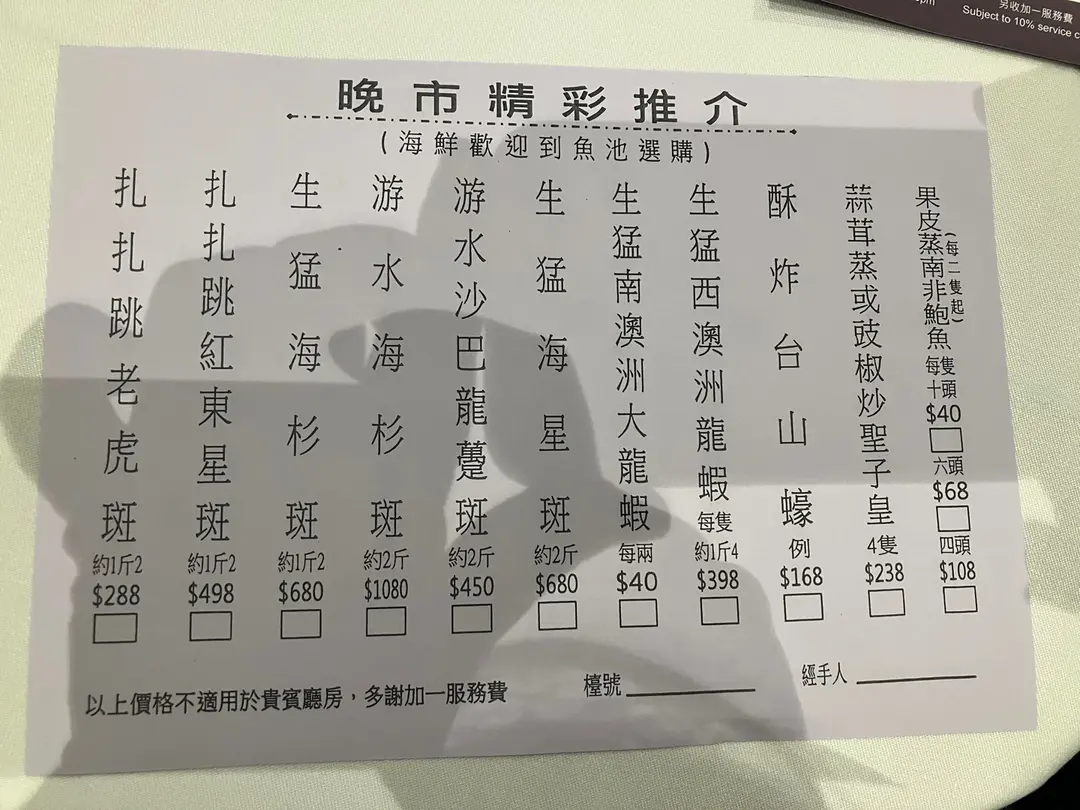 另收加一服務費
Subject to 10% service c
晚市精彩推介
(海鮮歡迎到魚池選購)
果皮蒸南非鮑魚
(每二隻起)
每隻
十頭
$40
六頭
$68
四頭
$108
蒜茸蒸或豉椒炒聖子皇
4隻
$238
酥炸台山蠔
例
$168
生猛西澳洲龍蝦
每隻
約1斤4
$398
生猛南澳洲大龍蝦
每兩
$40
生猛海星斑
約2斤
$680
游水沙巴龍躉斑
約2斤
$450
游水海杉斑
約2斤
$1080
生猛海杉斑
約1斤2
$680
扎扎跳紅東星斑
約1斤2
$498
扎扎跳老虎斑
約1斤2
$288
以上價格不適用於貴賓廳房，多謝加一服務費
檯號
經手人